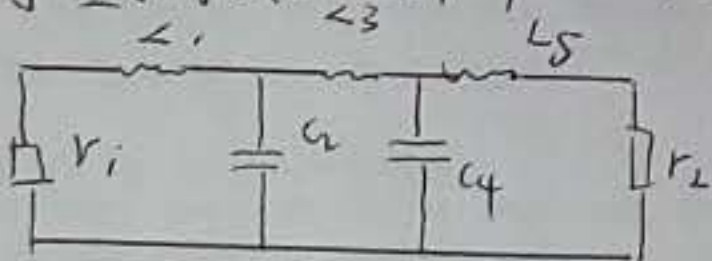 L1 L3 L5
ri C2 C4 rL